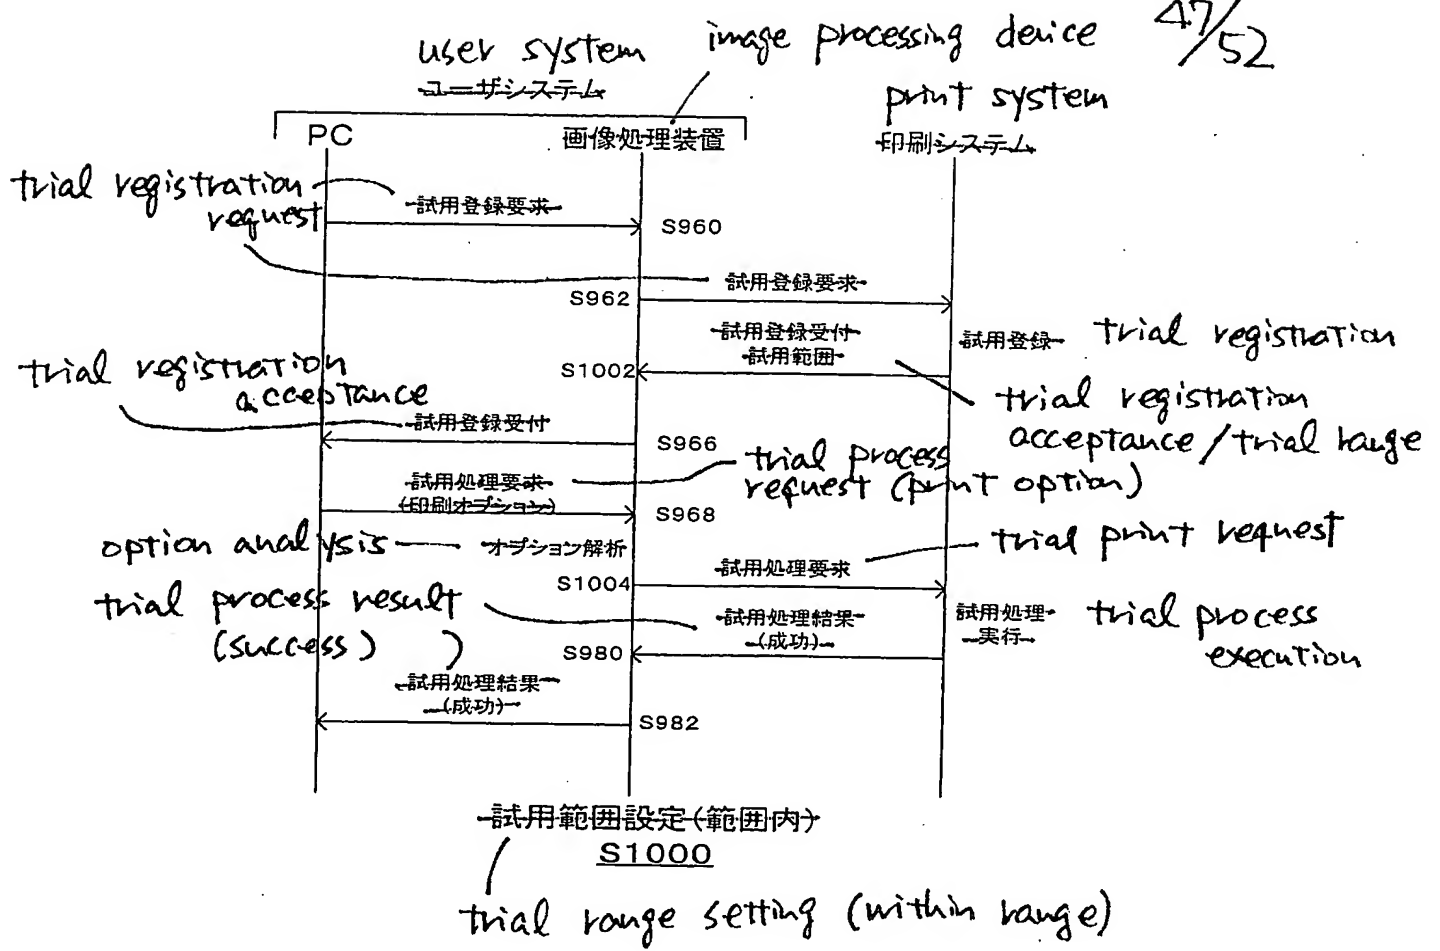 47/52
user system
image processing device
ユーザシステム
print system
PC
画像処理装置
印刷システム
trial registration
request
試用登録要求
S960
試用登録要求
S962
試用登録受付
試用範囲
試用登録
trial registration
S1002
trial registration
acceptance
trial registration
acceptance / trial range
試用登録受付
S966
trial process
request (print option)
試用処理要求
(印刷オプション)
S968
option analysis
オプション解析
trial print request
試用処理要求
S1004
trial process result
(success) )
試用処理結果
(成功)
試用処理
実行
trial process
execution
S980
試用処理結果
(成功)
S982
試用範囲設定(範囲内)
S1000
trial range setting (within range)